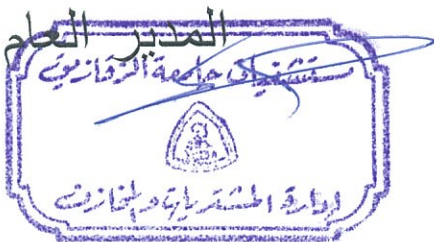 المدير العام
مستشفيات جامعة الزقازيق
إدارة المشتريات والمخازن